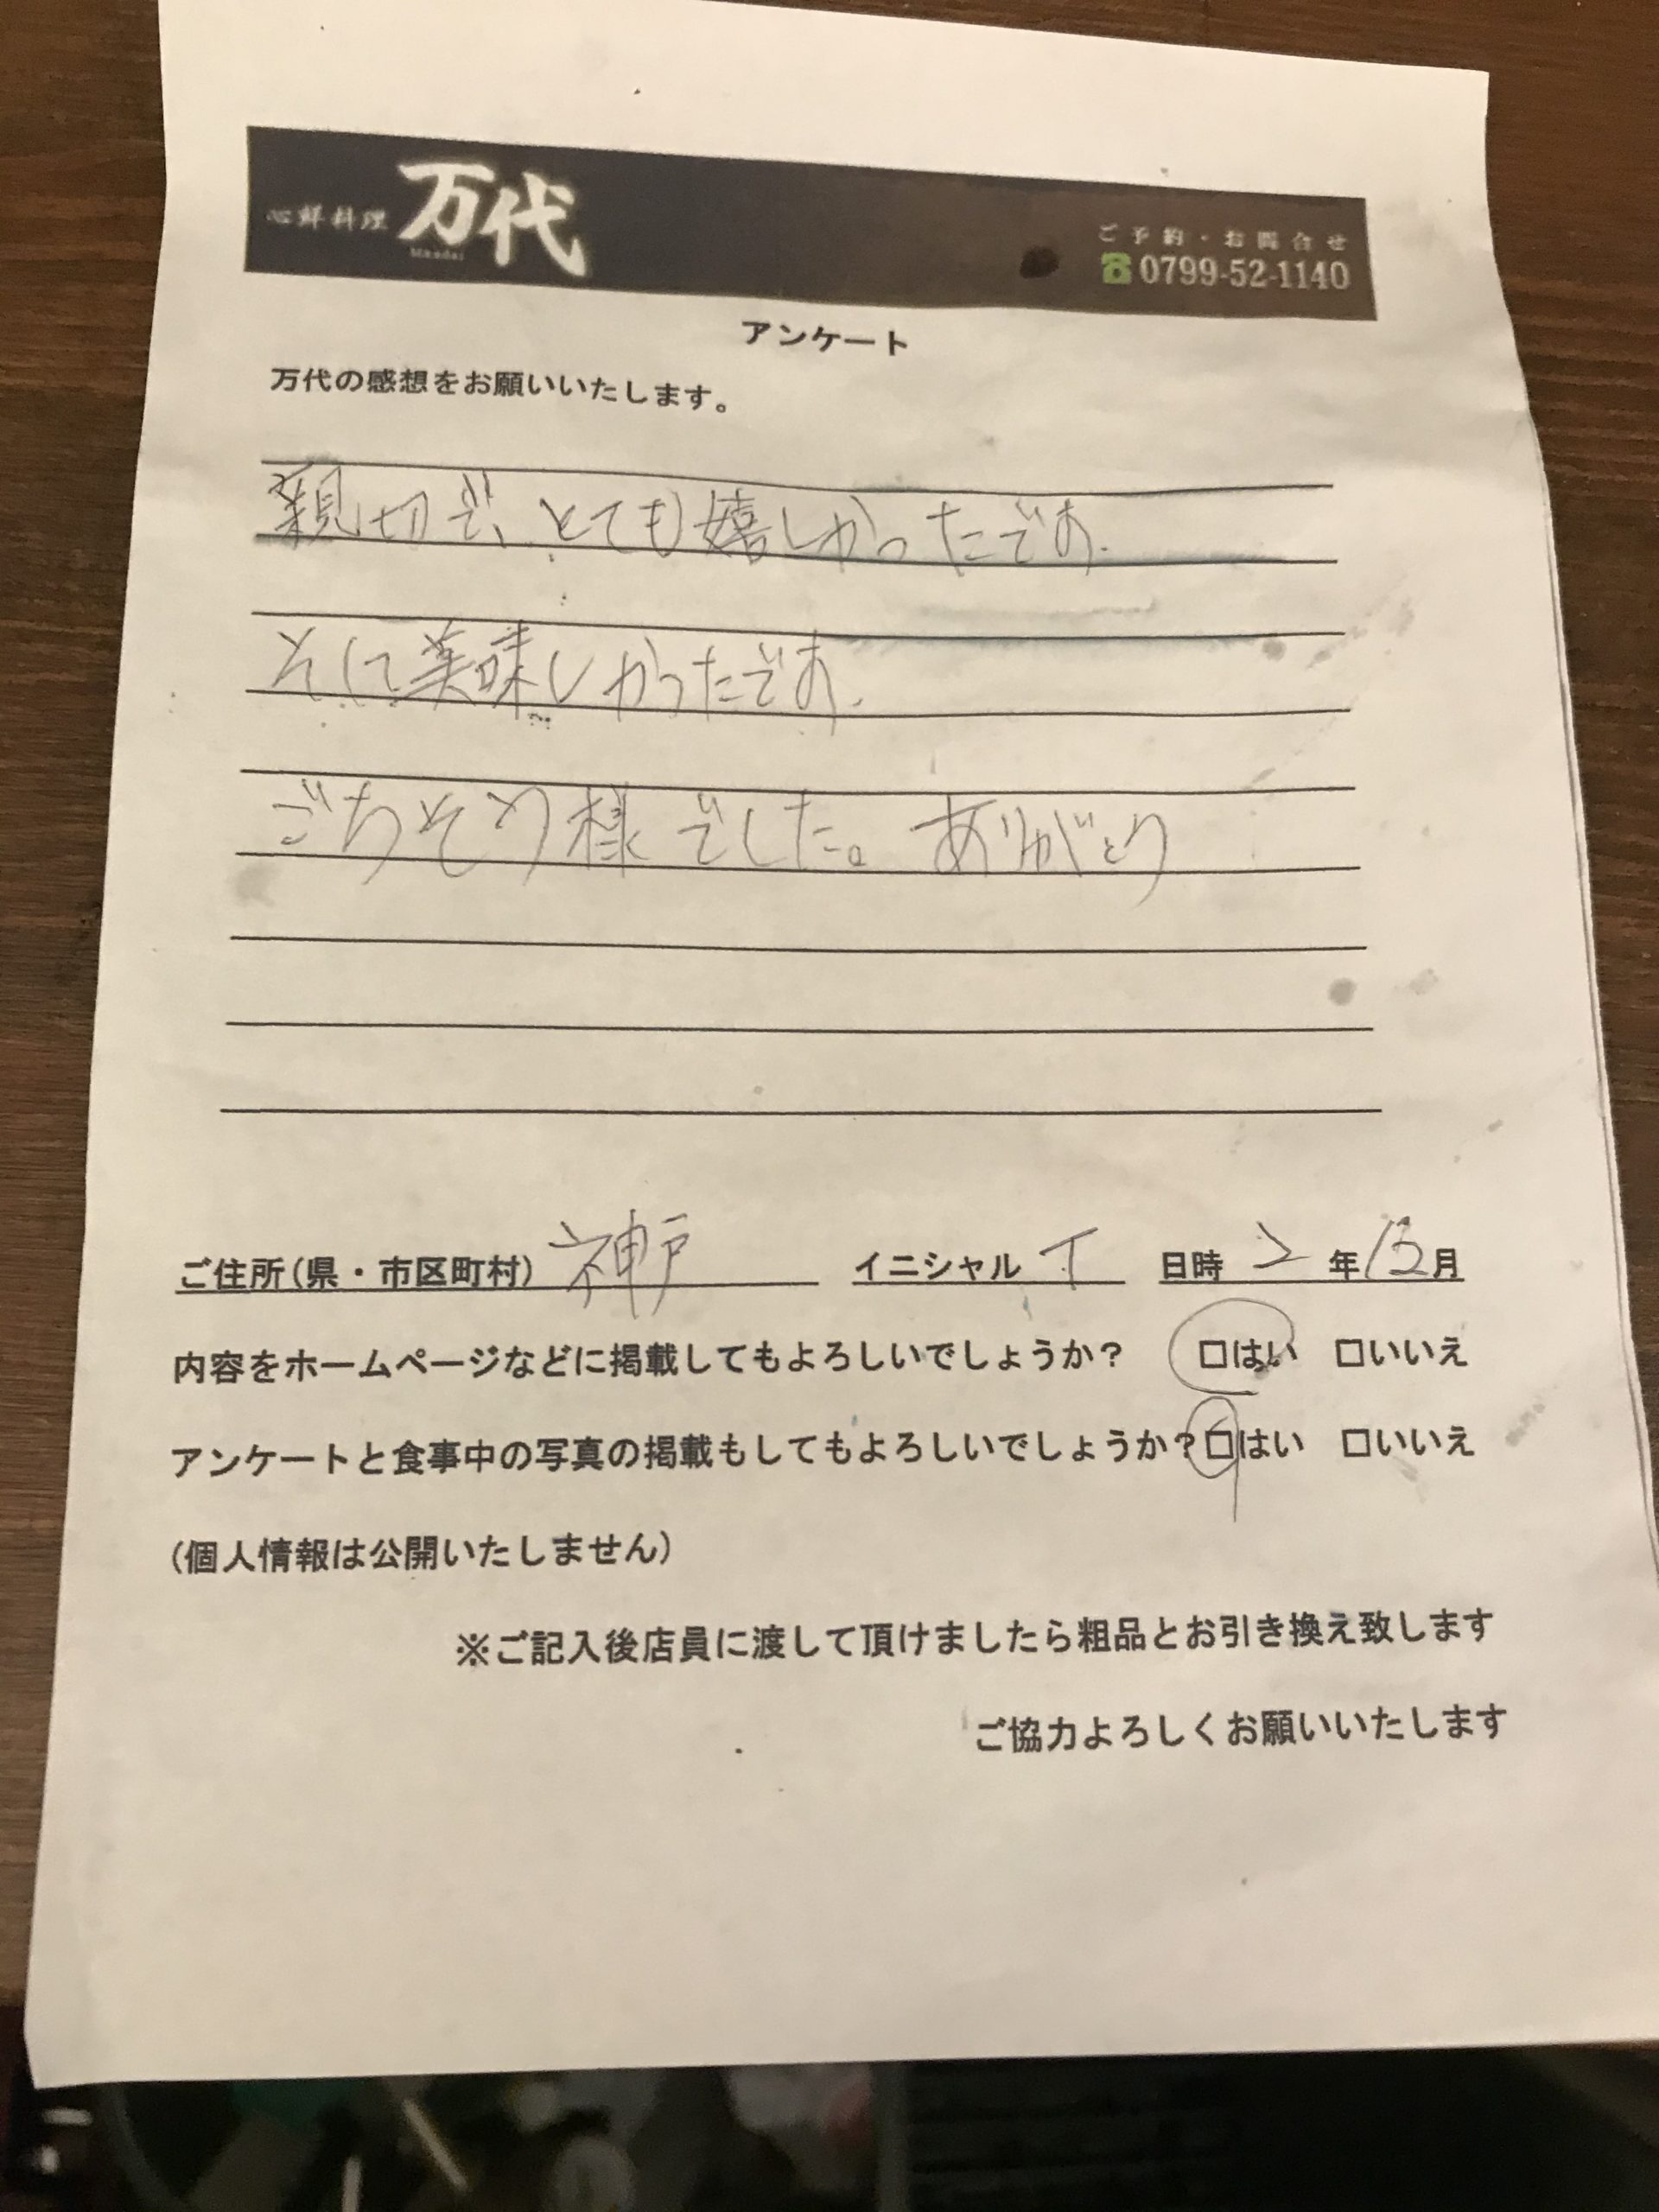 心鮮料理 万代
Mandai
ご予約・お問合せ
☎0799-52-1140
アンケート
万代の感想をお願いいたします。
親切で、とても嬉しかったです.
そして美味しかったです.
ごちそう様でした。ありがとう
ご住所(県・市区町村) 神戸 イニシャル T 日時 2 年 月
内容をホームページなどに掲載してもよろしいでしょうか? □はい □いいえ
アンケートと食事中の写真の掲載もしてもよろしいでしょうか?□はい □いいえ
(個人情報は公開いたしません)
※ご記入後店員に渡して頂けましたら粗品とお引き換え致します
ご協力よろしくお願いいたします